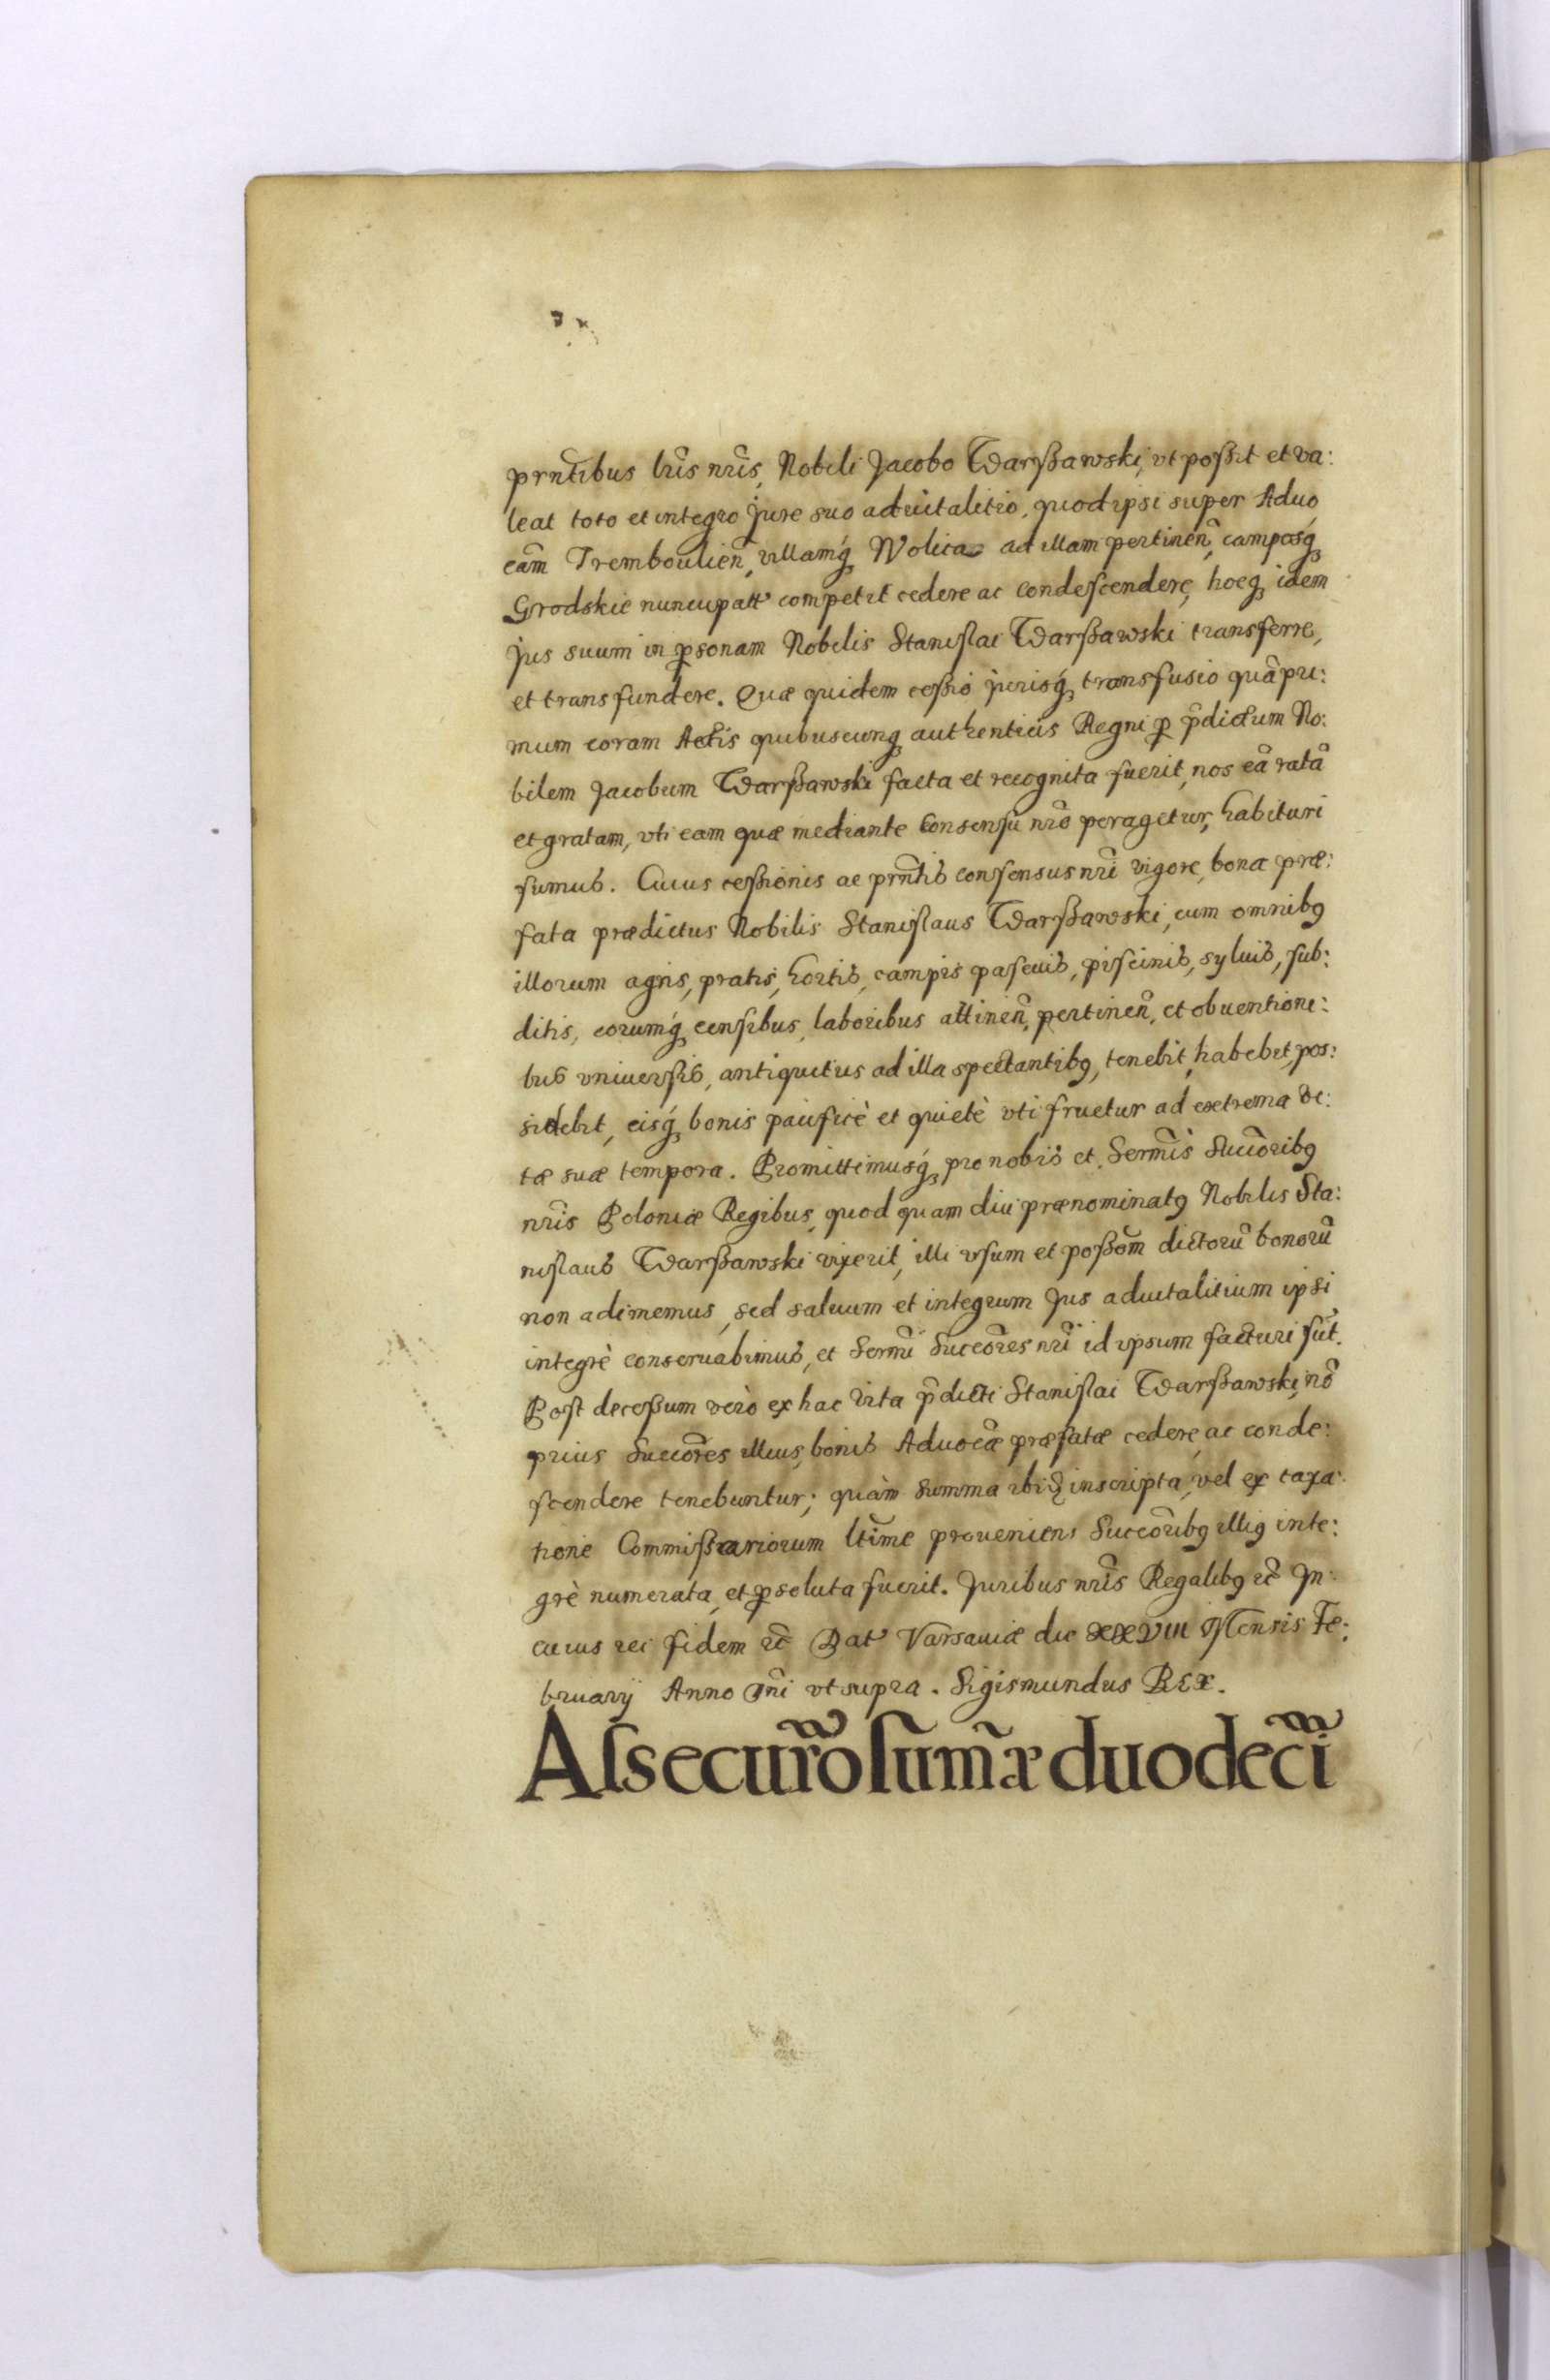 prñtibus lrĩs nrĩs, Nobili Jacobo Warßawski, vt poßit et va:
leat toto et integro Jure suo aduitalitio, quod ipsi super Aduo
cãm Trembouliеñ, villamq́ꝫ Wolica ad illam pertineñ, camposq́ꝫ
Grodskie nuncupatt' competit cedere ac condescendere, hocqꝫ idem
Jus suum in ꝑsonam Nobilis Stanislai Warßawski transferre,
et transfundere. Quæ quidem ceßio jurisq́ꝫ transfusio quãpri:
mum coram Actis quibuscunqꝫ authenticis Regni ꝑ p̃dictum No:
bilem Jacobum Warßawski facta et recognita fuerit, nos eã ratã
et gratam, vti eam quæ mediante Consensu nrõ peragetur, habituri
sumus. Cuius ceßionis ac prñtis consensus nrĩ vigore, bona præ:
fata prædictus Nobilis Stanislaus Warßawski, cum omnibꝰ
illorum agris, pratis, hortis, campis pascuis, piscinis, syluis, sub:
ditis, eorumq́ꝫ censibus, laboribus attineñ, pertineñ, et obuentioni:
bus vniuersis, antiquitus ad illa spectantibꝰ, tenebit, habebit, pos:
sidebit, eisq́ꝫ bonis pacificè et quietè vti fruetur ad extrema vi:
tæ suæ tempora. Promittimusq́ꝫ pro nobis et Sermĩs Succõribꝰ
nrĩs Poloniæ Regibus, quod quam diu prænominatꝰ Nobilis Sta:
nislaus Warßawski vixerit, illi vsum et poßẽm dictorũ bonorũ
non adimemus, sed saluum et integrum Jus aduitalitium ipsi
integrè conseruabimus, et Sermĩ Succõres nrĩ id ipsum facturi sũt.
Post deceßum verò ex hac vita p̃dicti Stanislai Warßawski, nõ
prius Succõres illius, bonis Aduocãe præfatæ cedere, ac conde:
scendere tenebuntur; quàm Summa ibiꝫ inscripta, vel ex taxa:
tione Commißariorum ltĩme proueniens Succõribꝰ illiꝰ inte:
grè numerata, et ꝑsoluta fuerit. Juribus nrĩs Regalibꝰ ꝛc̃ In
cuius rei fidem ꝛc̃ Dat' Varsauiæ die xxviii Mensis Fe:
bruarij Anno Dñi vt supra. Sigismundus REX.
Assecurõ sum̃æ duodecĩ